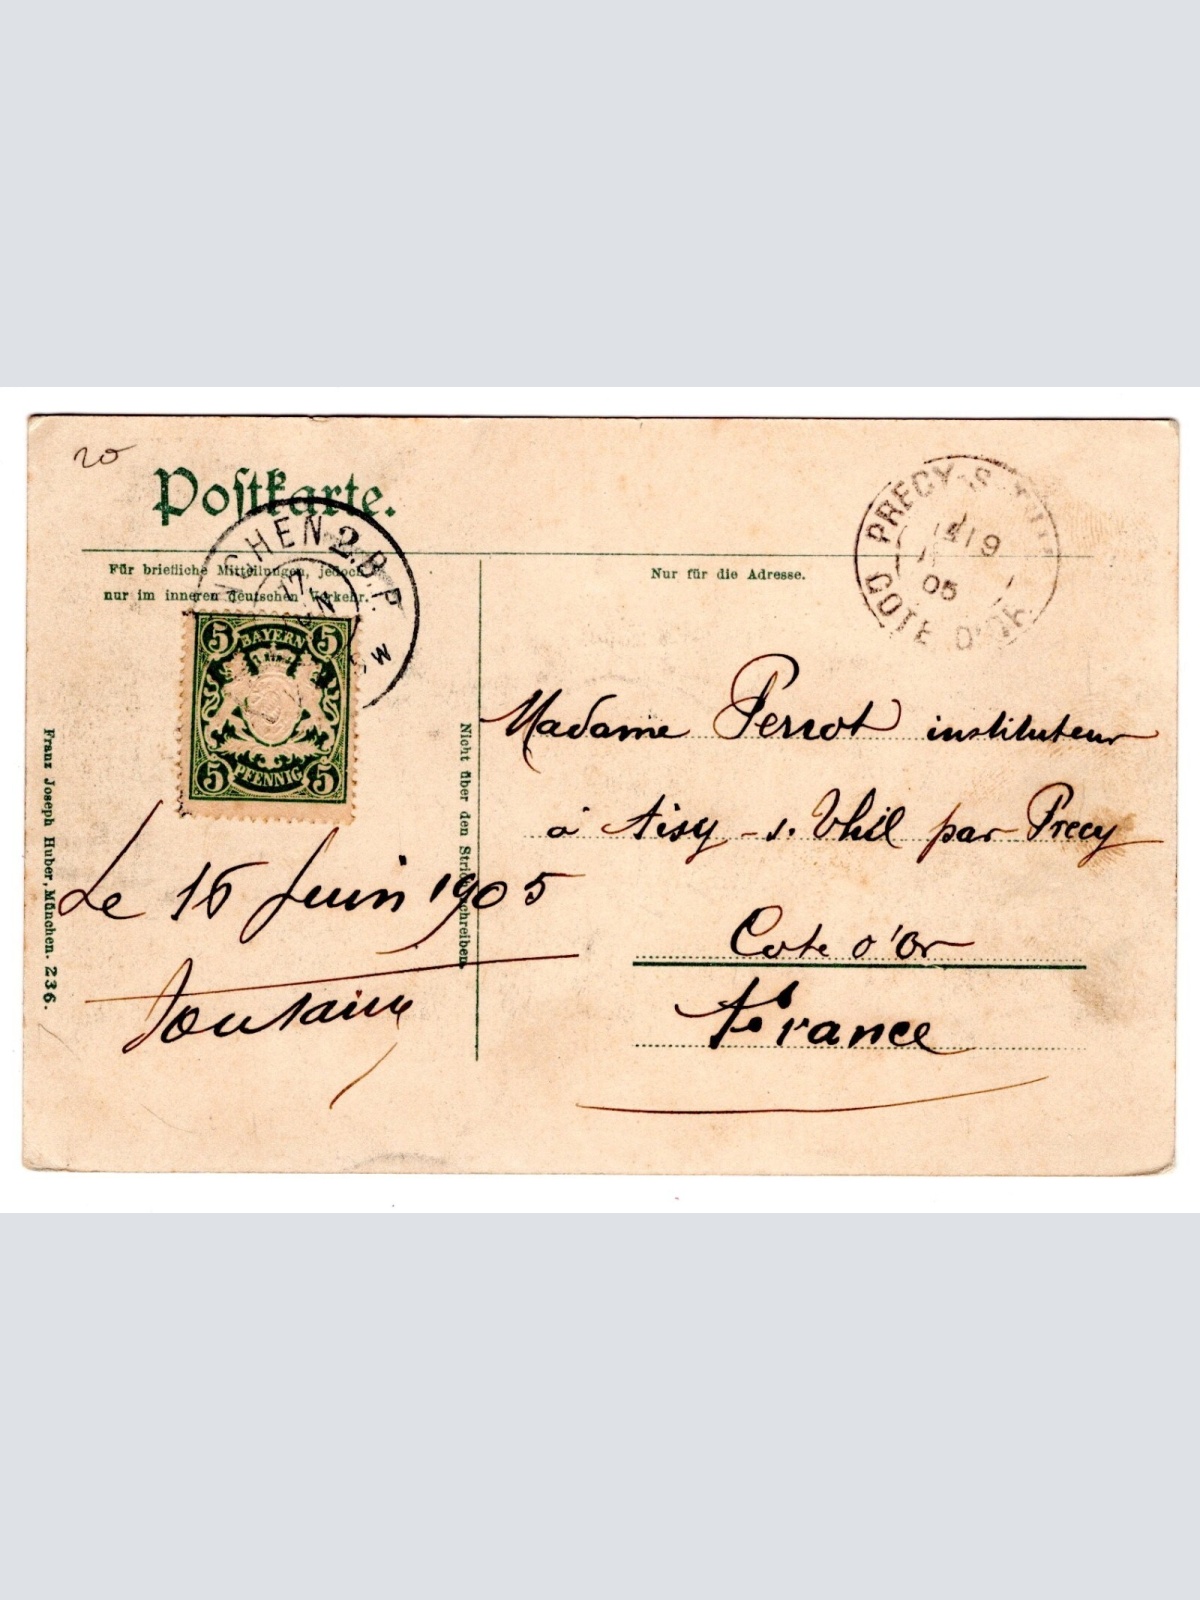 20
Postkarte.
CHEN 2. B.P.
17
Für briefliche Mitteilungen, jedoch
nur im inneren deutschen Verkehr.
Nur für die Adresse.
PRECY-S
19
05
COTE D'OR
5 BAYERN 5
5 PFENNIG 5
Franz Joseph Huber, München. 236.
Nicht über den Strich schreiben.
Madame Perrot instituteur
à Aisy - s. Thil par Precy
Cote d'Or
France
Le 16 Juin 1905